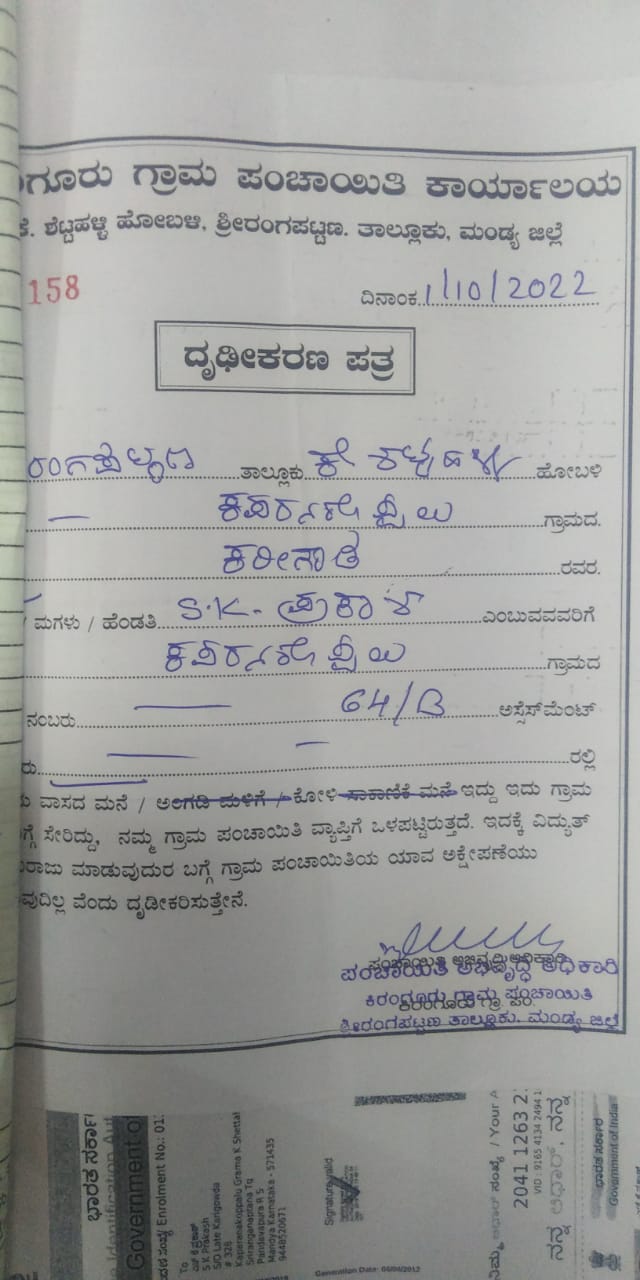 ಗೂರು ಗ್ರಾಮ ಪಂಚಾಯಿತಿ ಕಾರ್ಯಾಲಯ
ಕೆ. ಶೆಟ್ಟಹಳ್ಳಿ ಹೋಬಳಿ, ಶ್ರೀರಂಗಪಟ್ಟಣ. ತಾಲ್ಲೂಕು, ಮಂಡ್ಯ ಜಿಲ್ಲೆ
158 ದಿನಾಂಕ 1/10/2022
ದೃಢೀಕರಣ ಪತ್ರ
ತಾಲ್ಲೂಕು ಕೆ ಹೋಬಳಿ
ಗ್ರಾಮದ.
ರವರ.
/ ಮಗಳು / ಹೆಂಡತಿ S.K. ಪ್ರಕಾಶ್ ಎಂಬುವವವರಿಗೆ
ಗ್ರಾಮದ
ನಂಬರು 64/B ಅಸ್ಸೆಸ್‌ಮೆಂಟ್
ರು ರಲ್ಲಿ
ವಾಸದ ಮನೆ / ಅಂಗಡಿ ಮಳಿಗೆ / ಕೋಳಿ ಸಾಕಾಣಿಕೆ ಮನೆ ಇದ್ದು ಇದು ಗ್ರಾಮ
ಗ್ಗೆ ಸೇರಿದ್ದು, ನಮ್ಮ ಗ್ರಾಮ ಪಂಚಾಯಿತಿ ವ್ಯಾಪ್ತಿಗೆ ಒಳಪಟ್ಟಿರುತ್ತದೆ. ಇದಕ್ಕೆ ವಿದ್ಯುತ್
ರಾಜು ಮಾಡುವುದುರ ಬಗ್ಗೆ ಗ್ರಾಮ ಪಂಚಾಯಿತಿಯ ಯಾವ ಅಕ್ಷೇಪಣೆಯು
ವುದಿಲ್ಲ ವೆಂದು ದೃಡೀಕರಿಸುತ್ತೇನೆ.
ಪಂಚಾಯಿತಿ ಅಭಿವೃದ್ಧಿ ಅಧಿಕಾರಿ
ಕಿರಂಗೂರು ಗ್ರಾಮ ಪಂಚಾಯಿತಿ
ಶ್ರೀರಂಗಪಟ್ಟಣ ತಾಲ್ಲೂಕು. ಮಂಡ್ಯ ಜಿಲ್ಲೆ
ಭಾರತ ಸರ್ಕಾ
Government of
Enrolment No.: 01
To
S K Prakash
S/O Late Karigowda
# 328
Kaparanakoppalu Grama K Shettal
Srirangapatana Tq
Pandavapura R S
Mandya Karnataka - 571435
9448520671
Signature valid
Generation Date: 06/04/2012
ನಿಮ್ಮ ಆಧಾರ್ ಸಂಖ್ಯೆ / Your A
2041 1263 2
VID : 9165 4134 2494 1
ನನ್ನ ಆಧಾರ್, ನನ್ನ
ಭಾರತ ಸರ್ಕಾರ
Government of India